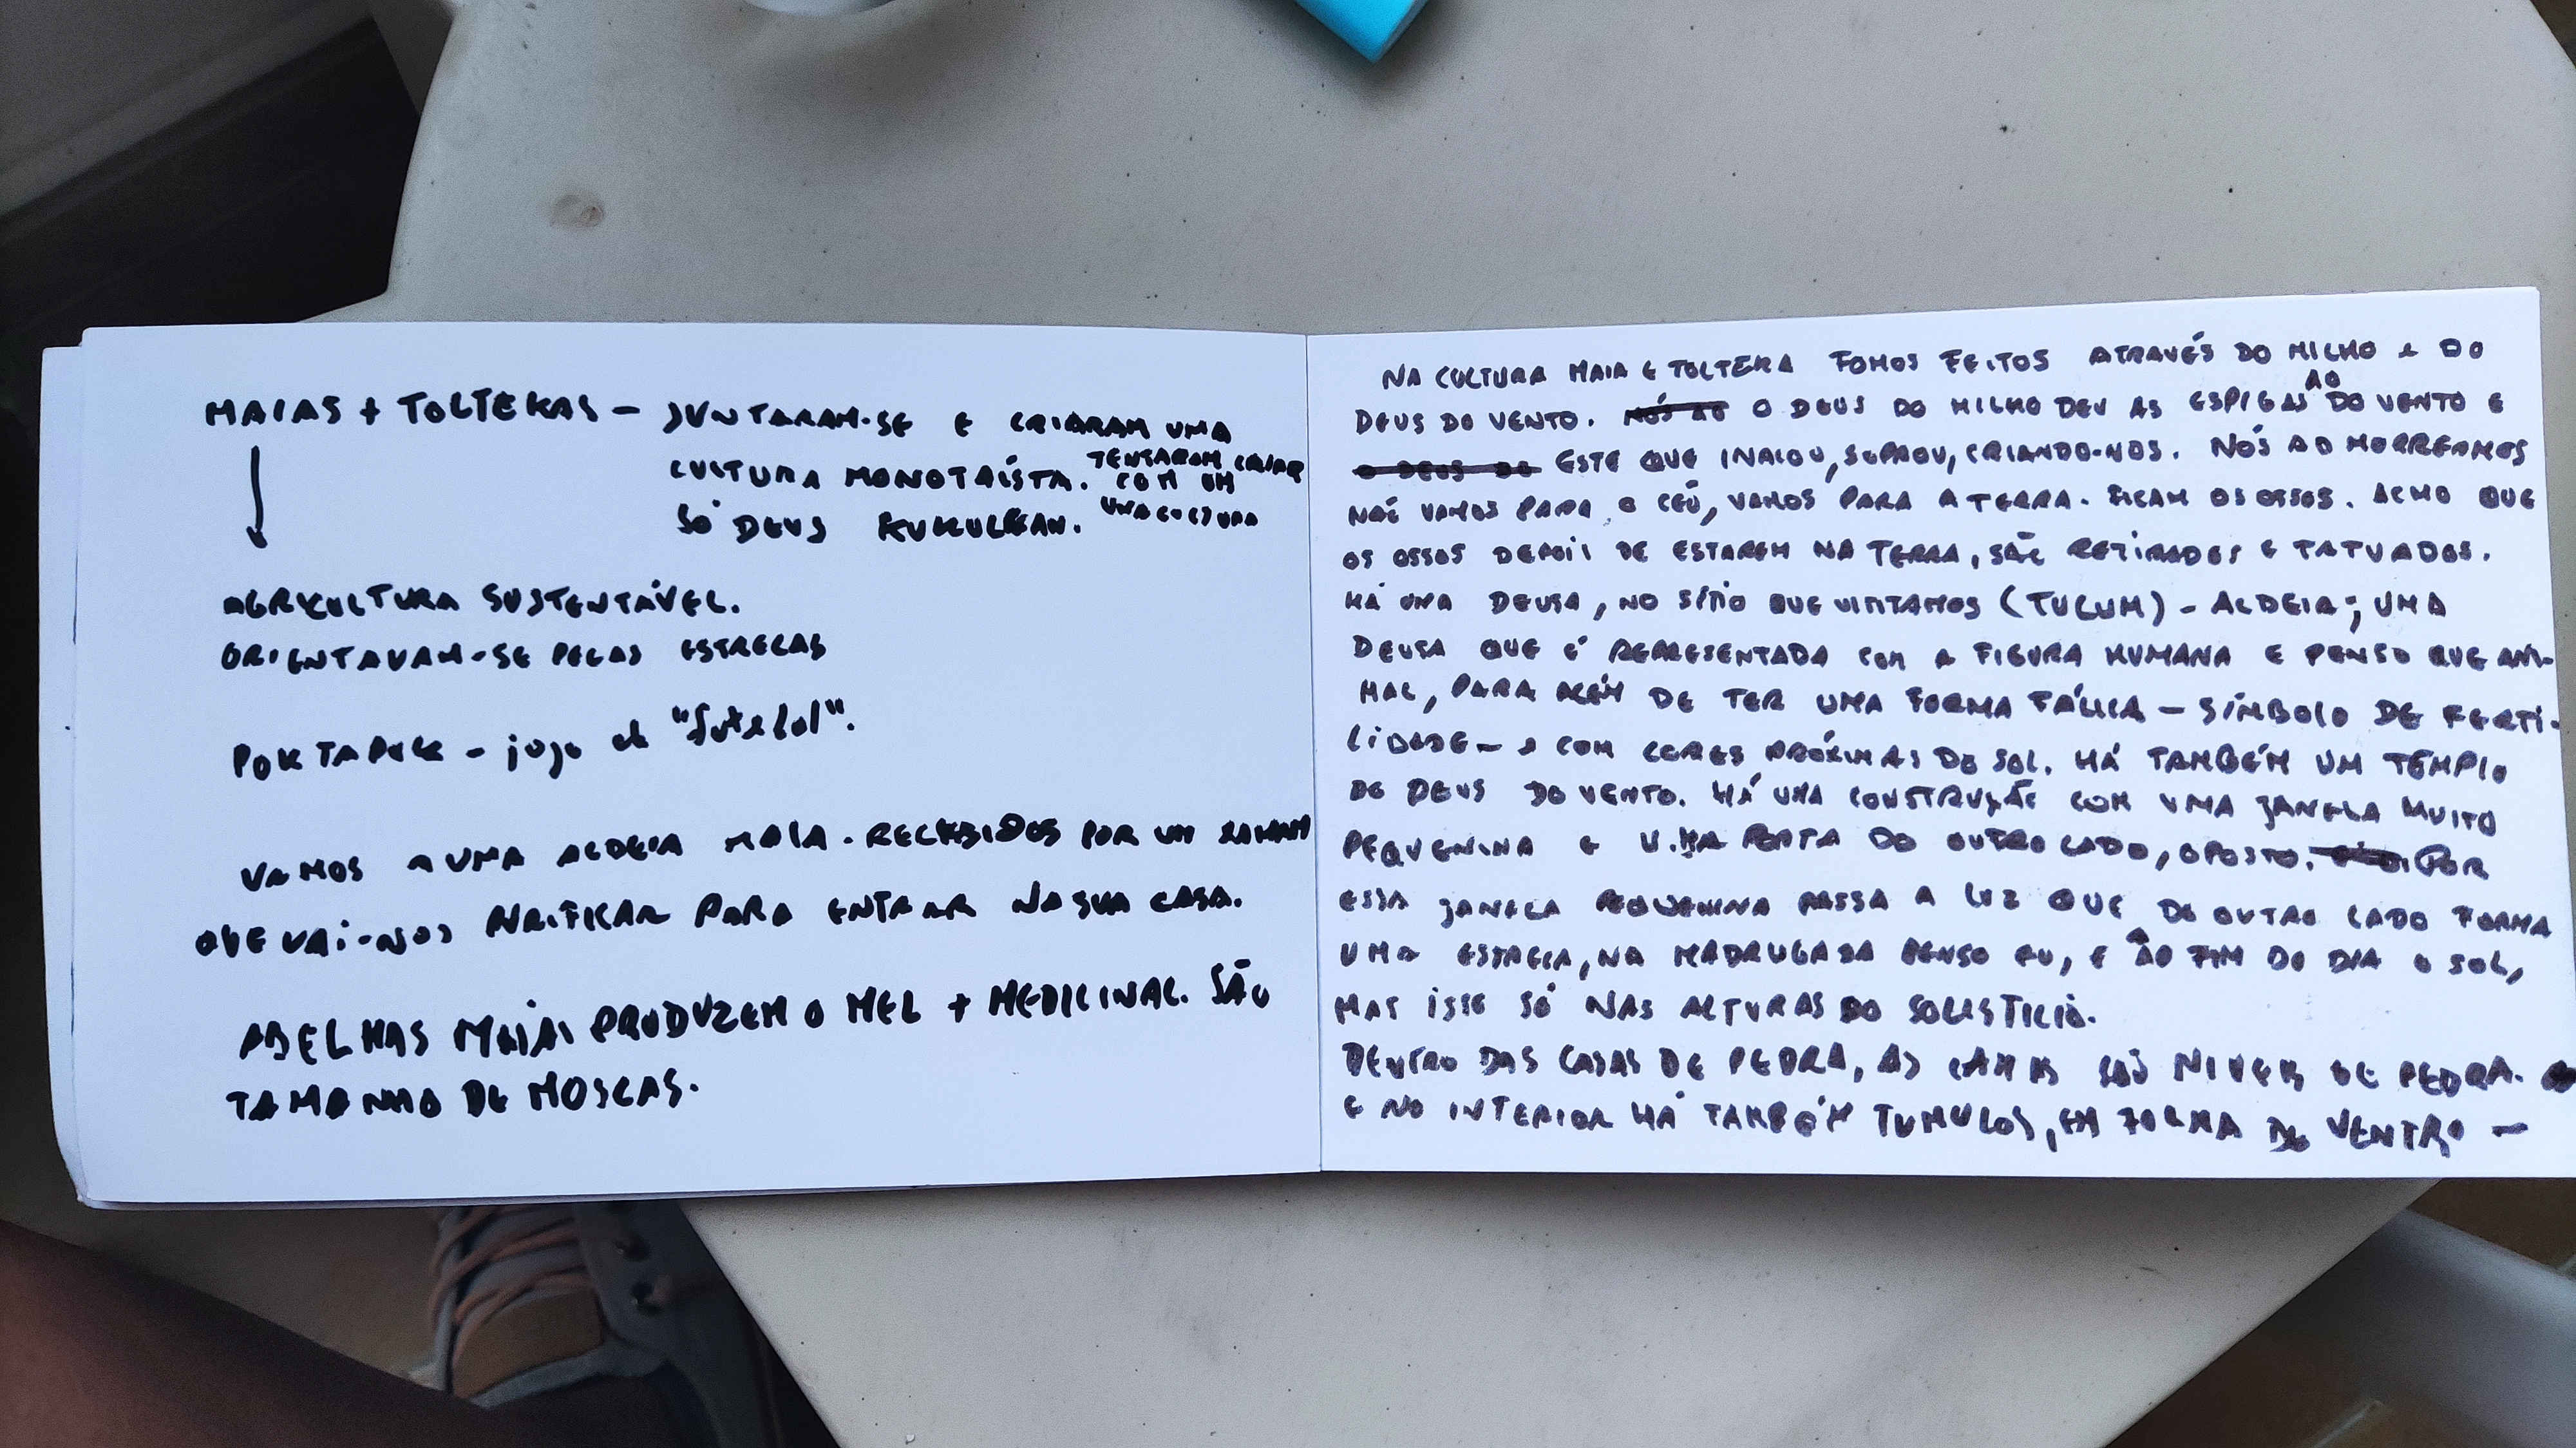 MAIAS + TOLTEKAS – JUNTARAM-SE E CRIARAM UMA
CULTURA MONOTAÍSTA. TENTARAM CRIAR
COM UM
SÓ DEUS KUKULKAN. UMA CULTURA
AGRICULTURA SUSTENTÁVEL.
ORIENTAVAM-SE PELAS ESTRELAS
POK TA POK – jogo de "futebol".
VAMOS A UMA ALDEIA MAIA. RECEBIDOS POR UM XAMAM
QUE VAI-NOS PURIFICAR PARA ENTRAR NA SUA CASA.
ABELHAS MAIAS PRODUZEM O MEL + MEDICINAL. SÃO
TAMANHO DE MOSCAS.
NA CULTURA MAIA E TOLTEKA FOMOS FEITOS ATRAVÉS DO MILHO E DO
DEUS DO VENTO. NÓS AO O DEUS DO MILHO DEU AS ESPIGAS AO DO VENTO E
O DEUS DO ESTE QUE INALOU, SOPROU, CRIANDO-NOS. NÓS AO MORRERMOS
NÃO VAMOS PARA O CÉU, VAMOS PARA A TERRA. FICAM OS OSSOS. ACHO QUE
OS OSSOS DEPOIS DE ESTAREM NA TERRA, SÃO RETIRADOS E TATUADOS.
HÁ UMA DEUSA, NO SÍTIO QUE VISITAMOS (TULUM) – ALDEIA; UMA
DEUSA QUE É REPRESENTADA COM A FIGURA HUMANA E PENSO QUE ANI-
MAL, PARA ALÉM DE TER UMA FORMA FÁLICA – SÍMBOLO DE FERTI-
LIDADE – E COM CORES PRÓXIMAS DO SOL. HÁ TAMBÉM UM TEMPLO
DO DEUS DO VENTO. HÁ UMA CONSTRUÇÃO COM UMA JANELA MUITO
PEQUENINA E UMA PORTA DO OUTRO LADO, OPOSTO. POR
ESSA JANELA PEQUENINA PASSA A LUZ QUE DO OUTRO LADO FORMA
UMA ESTRELA, NA MADRUGADA PENSO EU, E AO FIM DO DIA O SOL,
MAS ISSO SÓ NAS ALTURAS DO SOLESTICIO.
DENTRO DAS CASAS DE PEDRA, AS CAMAS SÃO NIVEIS DE PEDRA.
E NO INTERIOR HÁ TAMBÉM TUMULOS, EM FORMA DE VENTRO –